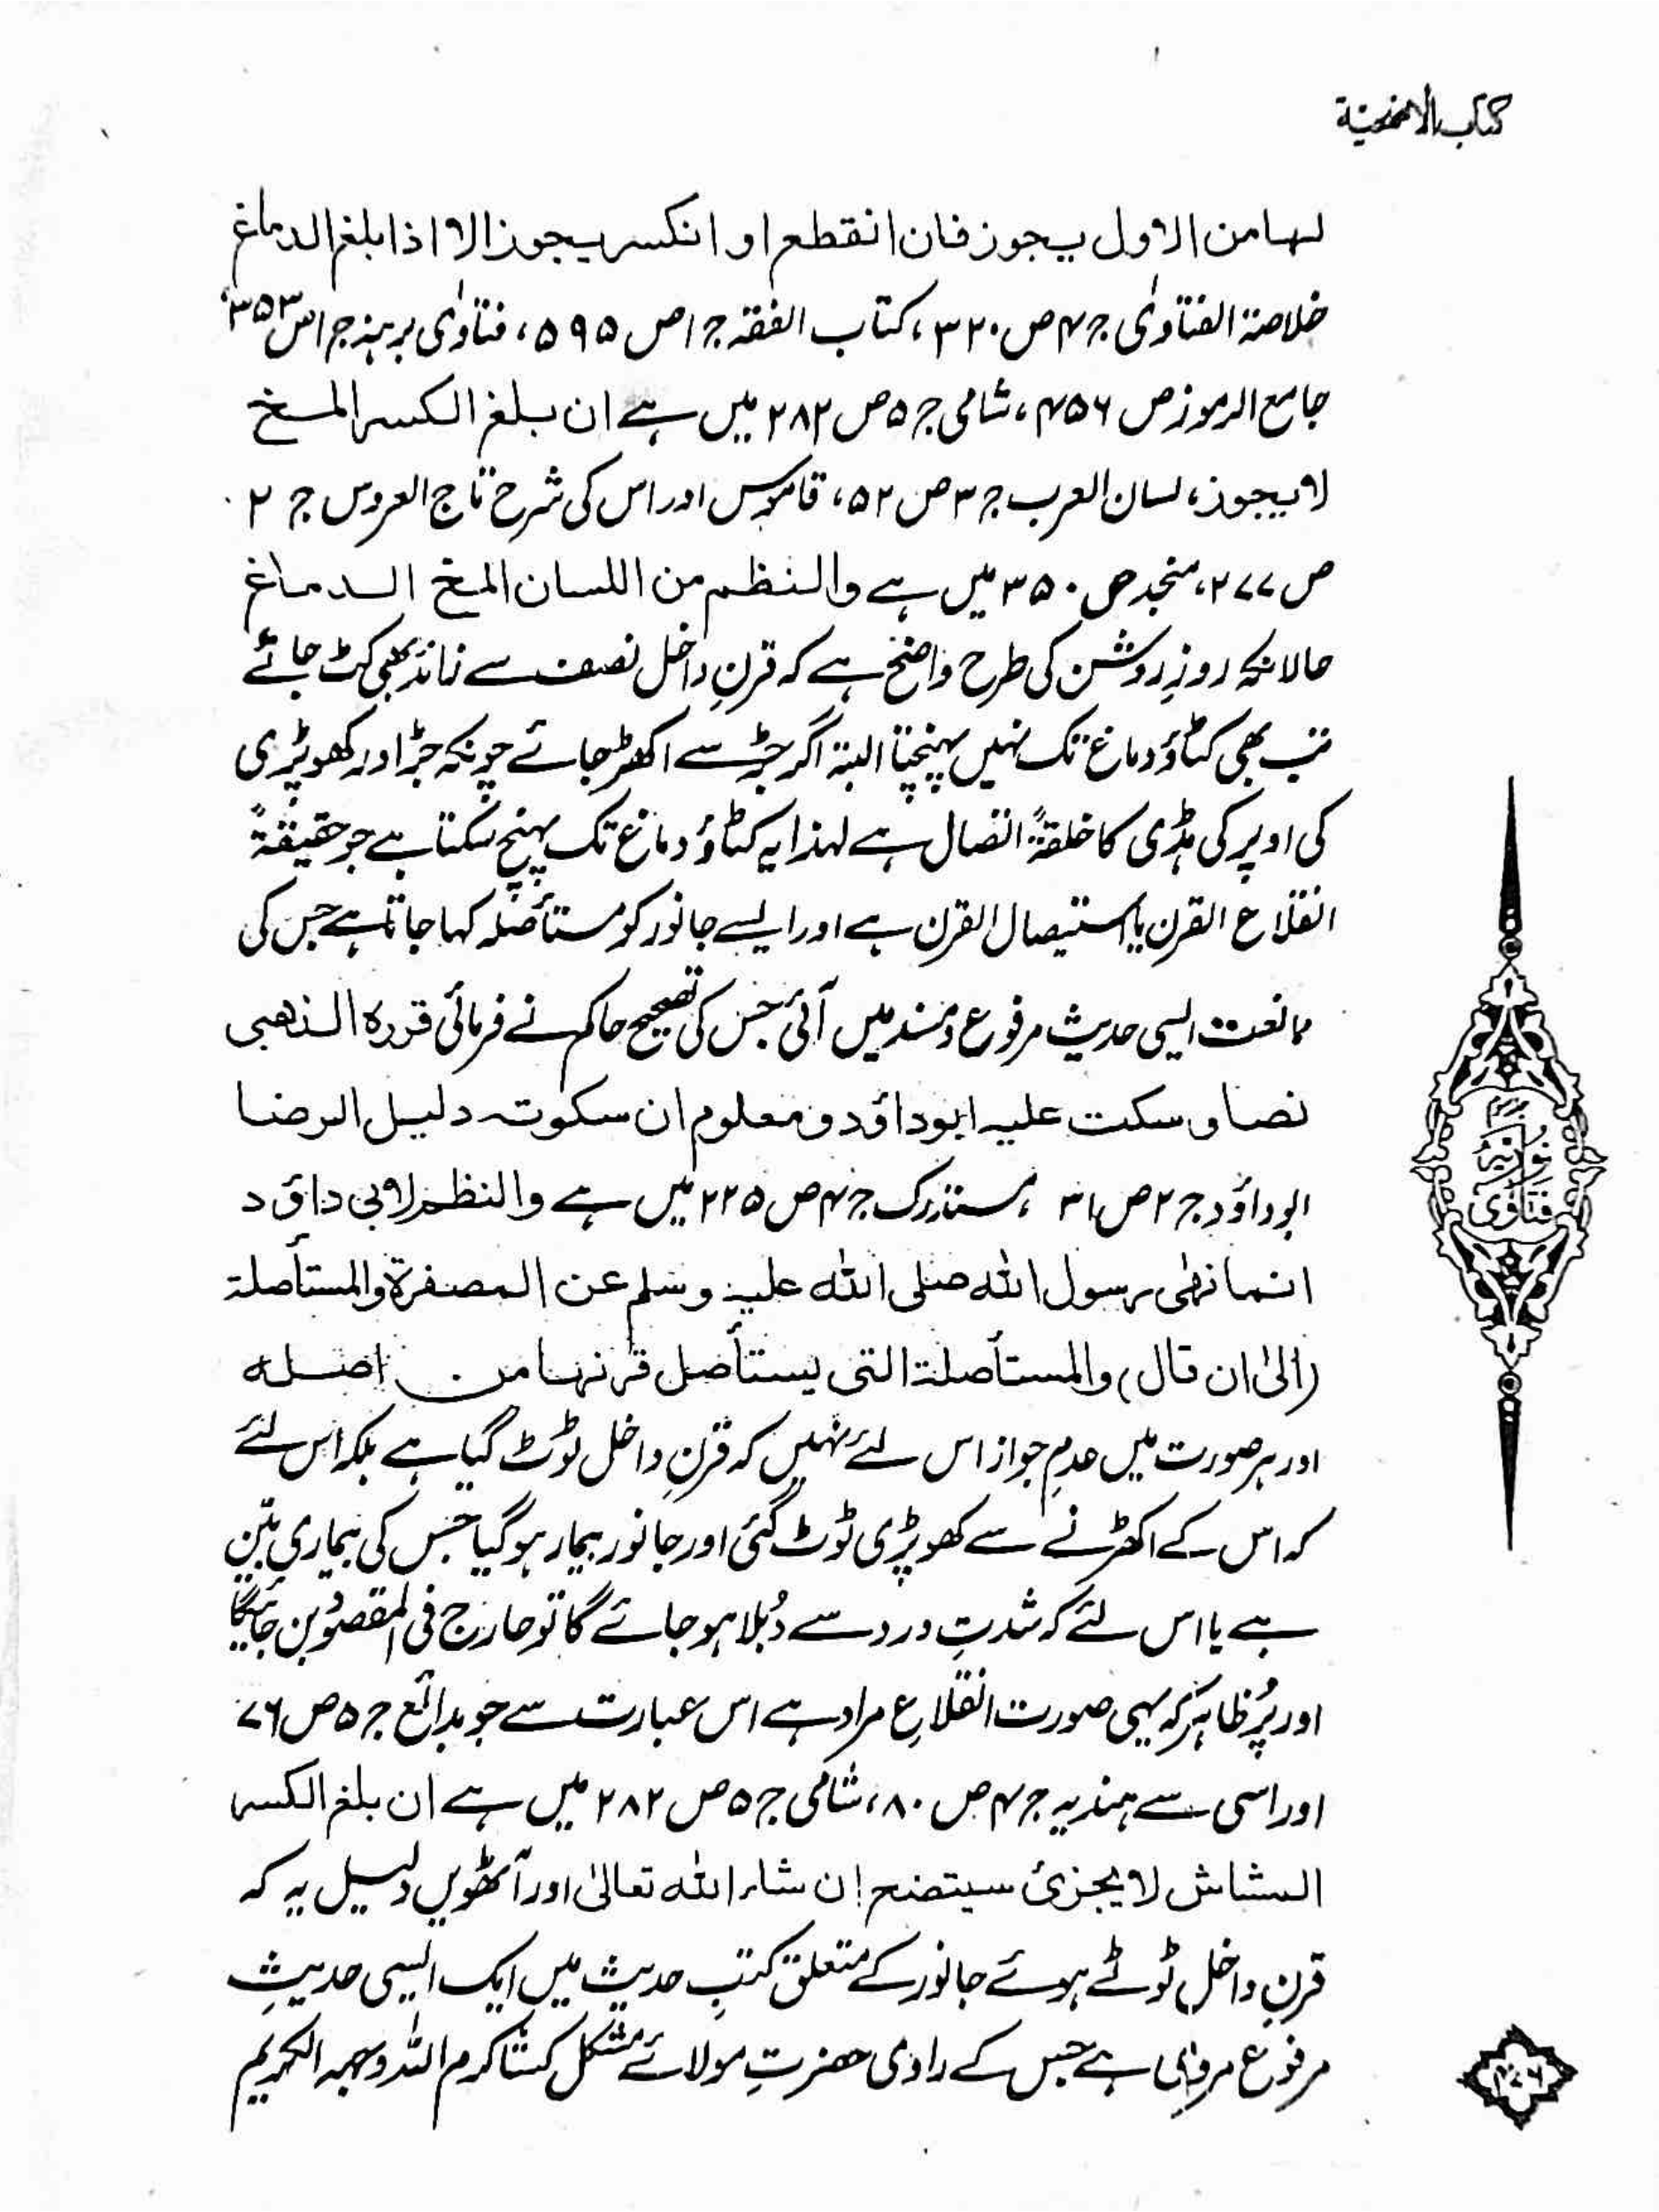 کتاب الاضحیۃ
لہا من الاول یجوز فان انقطع او انکسر یجوز الا اذا بلغ الدماغ
خلاصۃ الفتاوٰی ج ۴ ص ۳۲۰، کتاب الفقہ ج ۱ ص ۵۹۵، فتاوٰی برہنہ ج ۱ ص ۳۵۳،
جامع الرموز ص ۴۵۶، شامی ج ۵ ص ۲۸۲ میں ہے ان بلغ الکسر المخ
لا یجوز، لسان العرب ج ۳ ص ۵۲، قاموس اور اس کی شرح تاج العروس ج ۲
ص ۲۷۷، منجد ص ۳۵۰ میں ہے والنظم من اللسان المخ الدماغ
حالانکہ روزِ روشن کی طرح واضح ہے کہ قرنِ داخل نصف سے زائد بھی کٹ جائے
تب بھی کٹاؤ دماغ تک نہیں پہنچتا البتہ اگر جڑ سے اکھڑ جائے چونکہ جڑ اور کھوپڑی
کی اوپر کی ہڈی کا خلقۃً اتصال ہے لہذا یہ کٹاؤ دماغ تک پہنچ سکتا ہے جو حقیقۃً
انقلاع القرن یا استیصال القرن ہے اور ایسے جانور کو مستأصلہ کہا جاتا ہے جس کی
ممانعت ایسی حدیث مرفوع و مسند میں آئی جس کی تصحیح حاکم نے فرمائی قررہ الذھبی
نصا و سکت علیہ ابوداؤد و معلوم ان سکوتہ دلیل الرضا
ابوداؤد ج ۲ ص ۳۱، مستدرک ج ۴ ص ۲۲۵ میں ہے والنظم لابی داؤد
انما نھٰی رسول اللہ صلی اللہ علیہ وسلم عن المصفرۃ والمستأصلۃ
(الیٰ ان قال) والمستأصلۃ التی یستأصل قرنہا من اصلہ
اور ہر صورت میں عدمِ جواز اس لئے نہیں کہ قرنِ داخل ٹوٹ گیا ہے بلکہ اس لئے
کہ اس کے اکھڑنے سے کھوپڑی ٹوٹ گئی اور جانور بیمار ہو گیا جس کی بیماری بیّن
ہے یا اس لئے کہ شدتِ درد سے دُبلا ہو جائے گا تو حارج فی المقصود بن جائیگا
اور پُر ظاہر کہ یہی صورت انقلاعِ مراد ہے اس عبارت سے جو بدائع ج ۵ ص ۷۶
اور اسی سے ہندیہ ج ۴ ص ۸۰، شامی ج ۵ ص ۲۸۲ میں ہے ان بلغ الکسر
المشاش لا یجزئ سیتضح إن شاء اللہ تعالیٰ اور آٹھویں دلیل یہ کہ
قرنِ داخل ٹوٹے ہوئے جانور کے متعلق کتبِ حدیث میں ایک ایسی حدیثِ
مرفوع مروی ہے جس کے راوی حضرتِ مولائے مشکل کشا کرم اللہ وجہہ الکریم
نوریہ
فتاوٰی